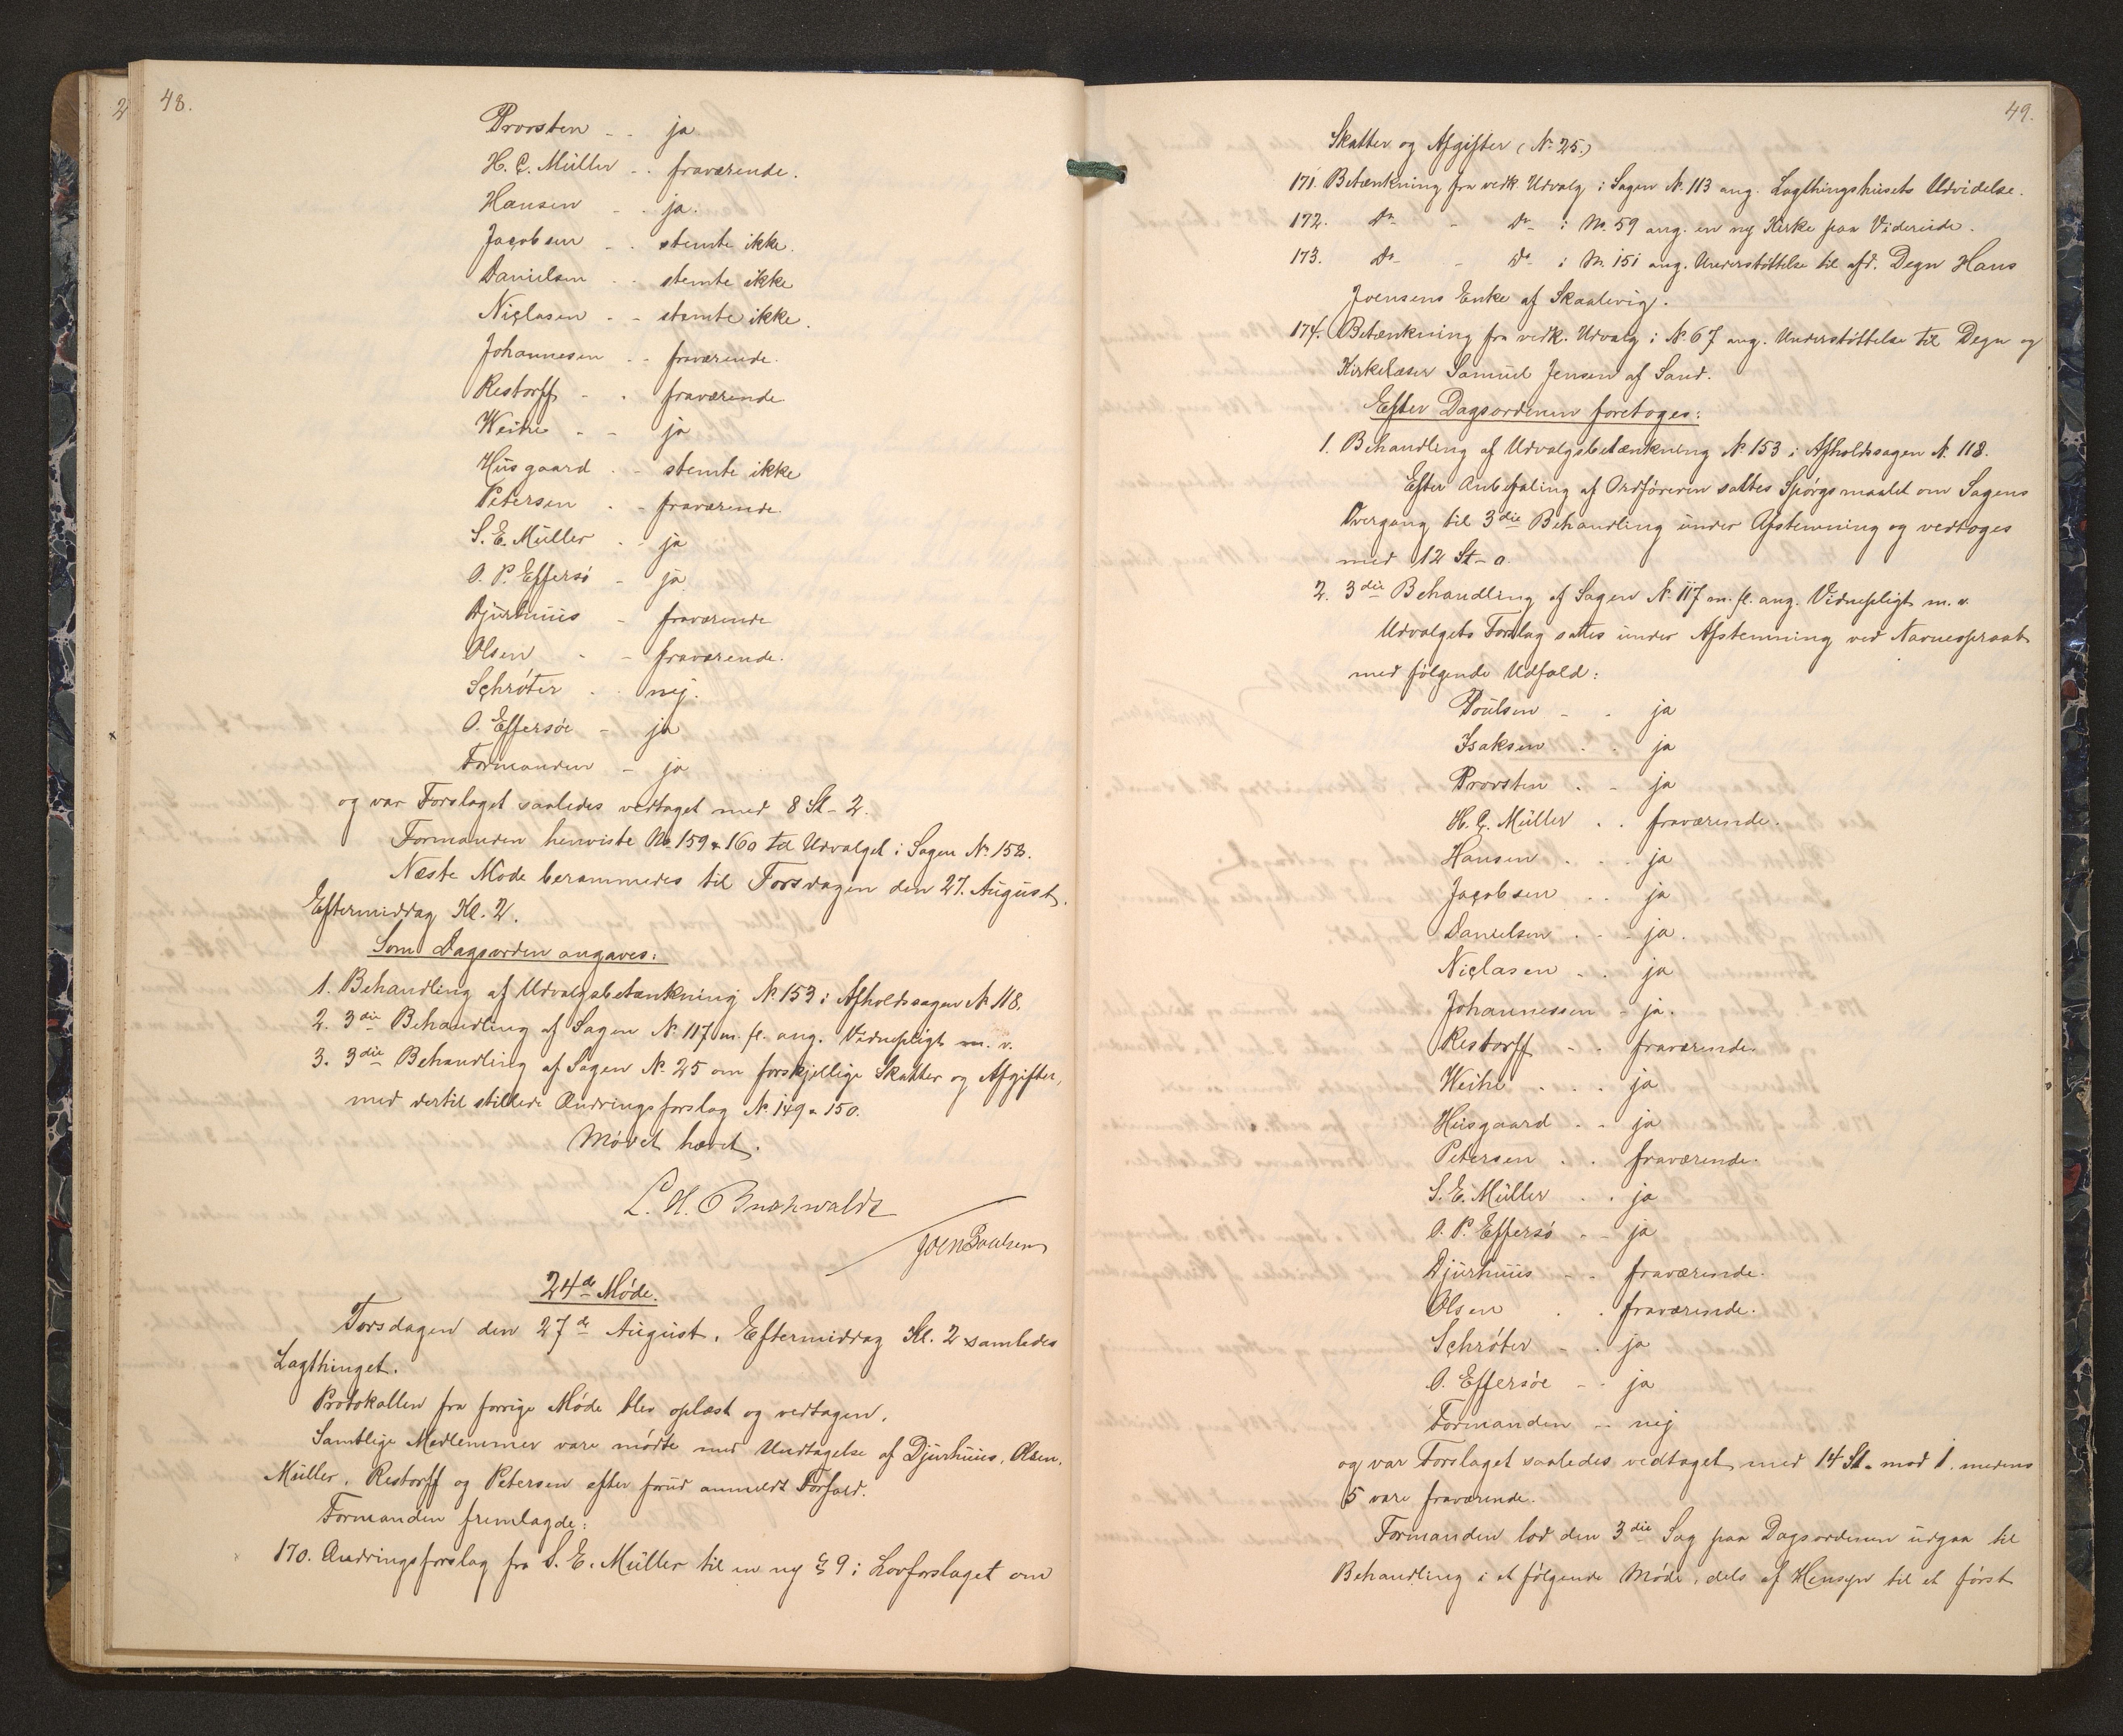 48.
Provsten - - ja
H. C. Müller - - fraværende.
Hansen - - ja.
Jacobsen - - stemte ikke.
Danielsen - - stemte ikke
Niclasen - - stemte ikke.
Johannesen - - fraværende.
Restorff - - fraværende.
Weihe - - ja
Husgaard - - stemte ikke
Petersen - - fraværende.
S. E. Müller - - ja
O. P. Effersö - ja
Djurhuus - fraværende
Olsen - - fraværende.
Schröter - - nej.
O. Effersöe - ja
Formanden - ja
og var Forslaget saaledes vedtaget med 8 St - 2.
Formanden henviste No 159 & 160 til Udvalget i Sagen No 158.
Næste Møde berammedes til Torsdagen den 27. August,
Eftermiddag Kl. 2.
Som Dagsorden angaves:
1. Behandling af Udvalgsbetænkning No 153 i Afholdssagen No 118.
2. 3die Behandling af Sagen No 117 m. fl. ang. Vidnepligt m. v.
3. 3die Behandling af Sagen No 25 om forskjellige Skatter og Afgifter,
med dertil stillede Ændringsforslag No 149 & 150.
Mödet hævet.
L. H. Buchwaldt
Joen Poulsen
24de Möde.
Torsdagen den 27de August, Eftermiddag Kl. 2 samledes
Lagthinget.
Protokollen fra forrige Möde blev oplæst og vedtagen.
Samtlige Medlemmer vare mödte med Undtagelse af Djurhuus, Olsen,
Müller, Restorff og Petersen efter forud anmeldt Forfald.
Formanden fremlagde:
170. Ændringsforslag fra S. E. Müller til en ny § 9 i Lovforslaget om
49.
Skatter og Afgifter (No 25.)
171. Betænkning fra vedk. Udvalg i Sagen No 113 ang. Lagthingshusets Udvidelse.
172. Do - Do i No 59 ang. en ny Kirke paa Videreide.
173. Do - Do i No 151 ang. Understöttelse til afd. Degn Hans
Joensens Enke af Skaalevig.
174. Betænkning fra vedk. Udvalg i No 67 ang. Understöttelse til Degn og
Kirkelæser Samuel Jensen af Sand.
Efter Dagsordenen foretoges:
1. Behandling af Udvalgsbetænkning No 153 i Afholdssagen No 118.
Efter Anbefaling af Ordföreren sattes Spörgsmaalet om Sagens
Overgang til 3die Behandling under Afstemning og vedtoges
med 12 St - 0.
2. 3die Behandling af Sagen No 117 m. fl. ang. Vidnepligt m. v.
Udvalgets Forslag sattes under Afstemning ved Navneopraab
med følgende Udfald:
Poulsen - - ja
Isaksen - - ja
Provsten - - ja
H. C. Müller - - fraværende.
Hansen - - ja
Jacobsen - - ja
Danielsen - - ja.
Niclasen - - ja
Johannessen - ja.
Restorff - - fraværende.
Weihe - - ja
Husgaard - - ja
Petersen - - fraværende.
S. E. Müller - - ja
O. P. Effersö - - ja
Djurhuus - - fraværende.
Olsen - - fraværende.
Schröter - - ja
O. Effersöe - - ja
Formanden - - nej
og var Forslaget saaledes vedtaget med 14 St. mod 1. medens
5 vare fraværende.
Formanden lod den 3die Sag paa Dagsordenen udgaa til
Behandling i et følgende Möde, dels af Hensyn til et först